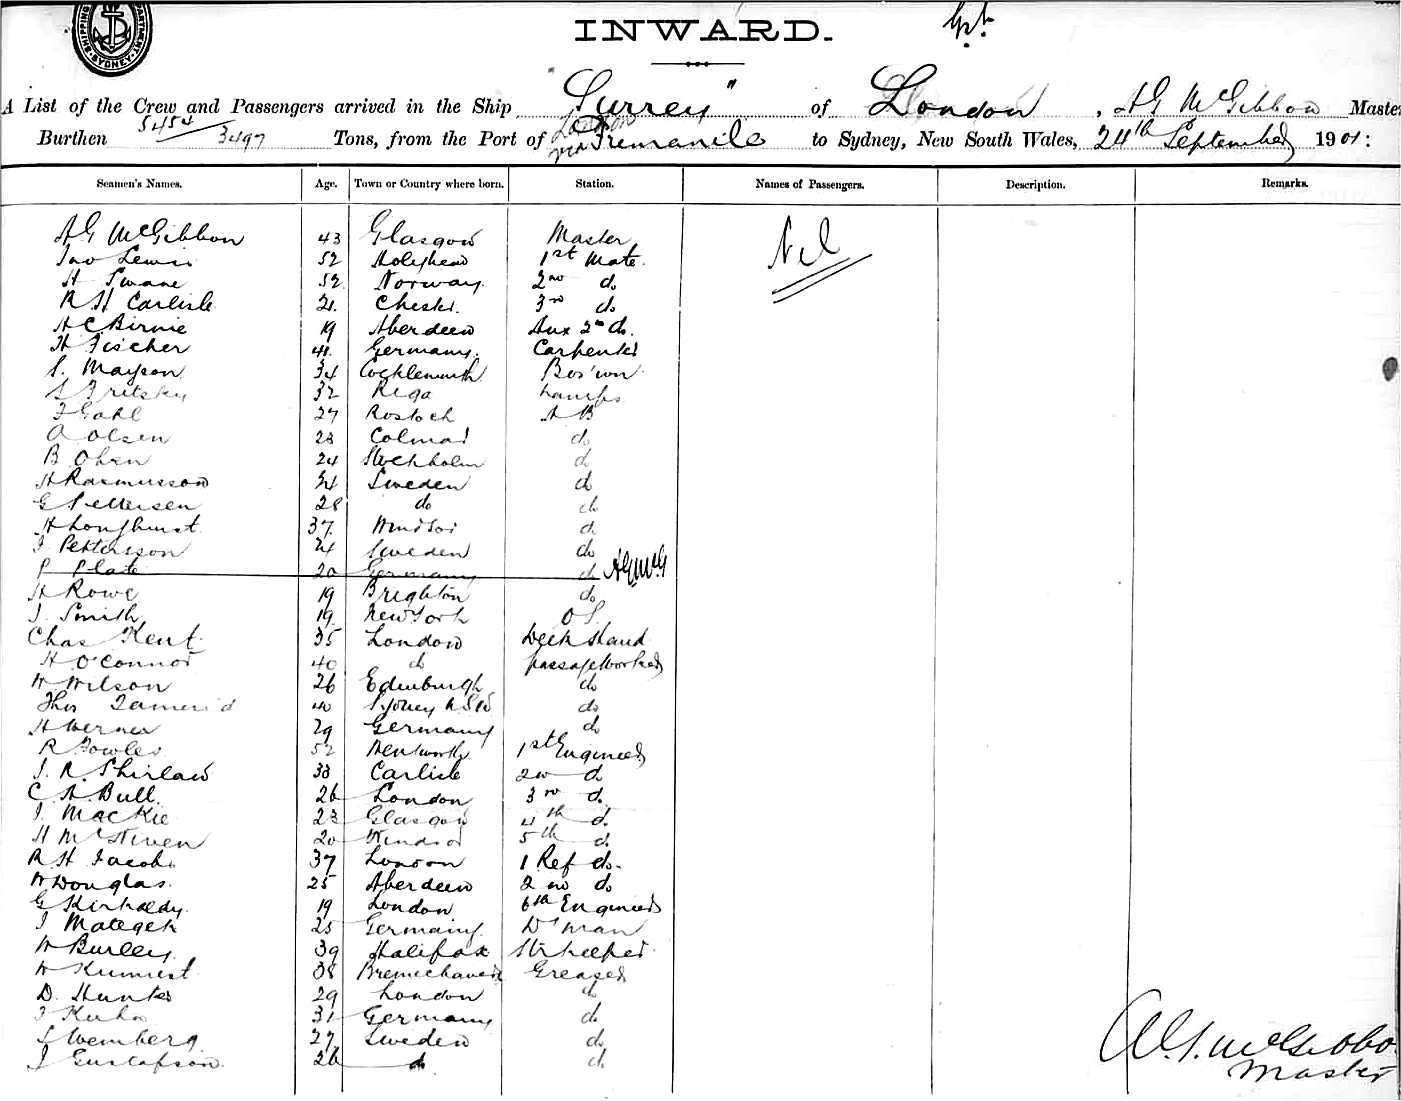 INWARD.
A List of the Crew and Passengers arrived in the Ship "Surrey" of London, A G McGibbon Master
Burthen 5454 / 3497 Tons, from the Port of London via Fremantle to Sydney, New South Wales, 24th September 1901:
Seamen's Names. Age. Town or Country where born. Station. Names of Passengers. Description. Remarks.
A G McGibbon 43 Glasgow Master Nil
Jno Lewis 52 Holyhead 1st Mate
H Swane 52 Norway 2nd do
R H Carlisle 21 Chester 3rd do
A C Birnie 19 Aberdeen Aux 2nd do.
H Fischer 41 Germany Carpenter
S. Mayson 34 Cockermouth Bos'wn
S Fritsky 32 Riga Lamps
F Gahl 27 Rostock A B
A Olsen 23 Colmar do
B Olsen 24 Stockholm do
H Rasmusson 34 Sweden do
G Pettersen 28 do do
H Longhurst 37 Windsor do
J Pettersson 24 Sweden do
P Plate 20 Germany do AGMcG
H Rowe 19 Brighton do
J. Smith 19 New York O S
Chas Kent 35 London Deck Hand
H O'Connor 40 do passage Worker
W Wilson 26 Edinburgh do
Thos 40 Sydney NSW do
H Werner 29 Germany do
R Fowles 52 Wentworth 1st Engineer
J. R. Shirlaw 33 Carlisle 2nd do
C A Bull. 26 London 3rd do
J MacKie 23 Glasgow 4th do
H McNiven 20 Windsor 5th do
R H Jacobs 37 London 1 Ref do.
W Douglas. 25 Aberdeen 2nd do
G Kirkaldy 19 London 6th Engineer
J Mategek 25 Germany D'man
W Burley 39 Halifax Strkeeper
W 38 Bremerhaven Greaser
D. Hunter 29 London do
F Kuhn 31 Germany do
S Wemberg 27 Sweden do
J Gustafson 26 do do
A. G. McGibbon
Master